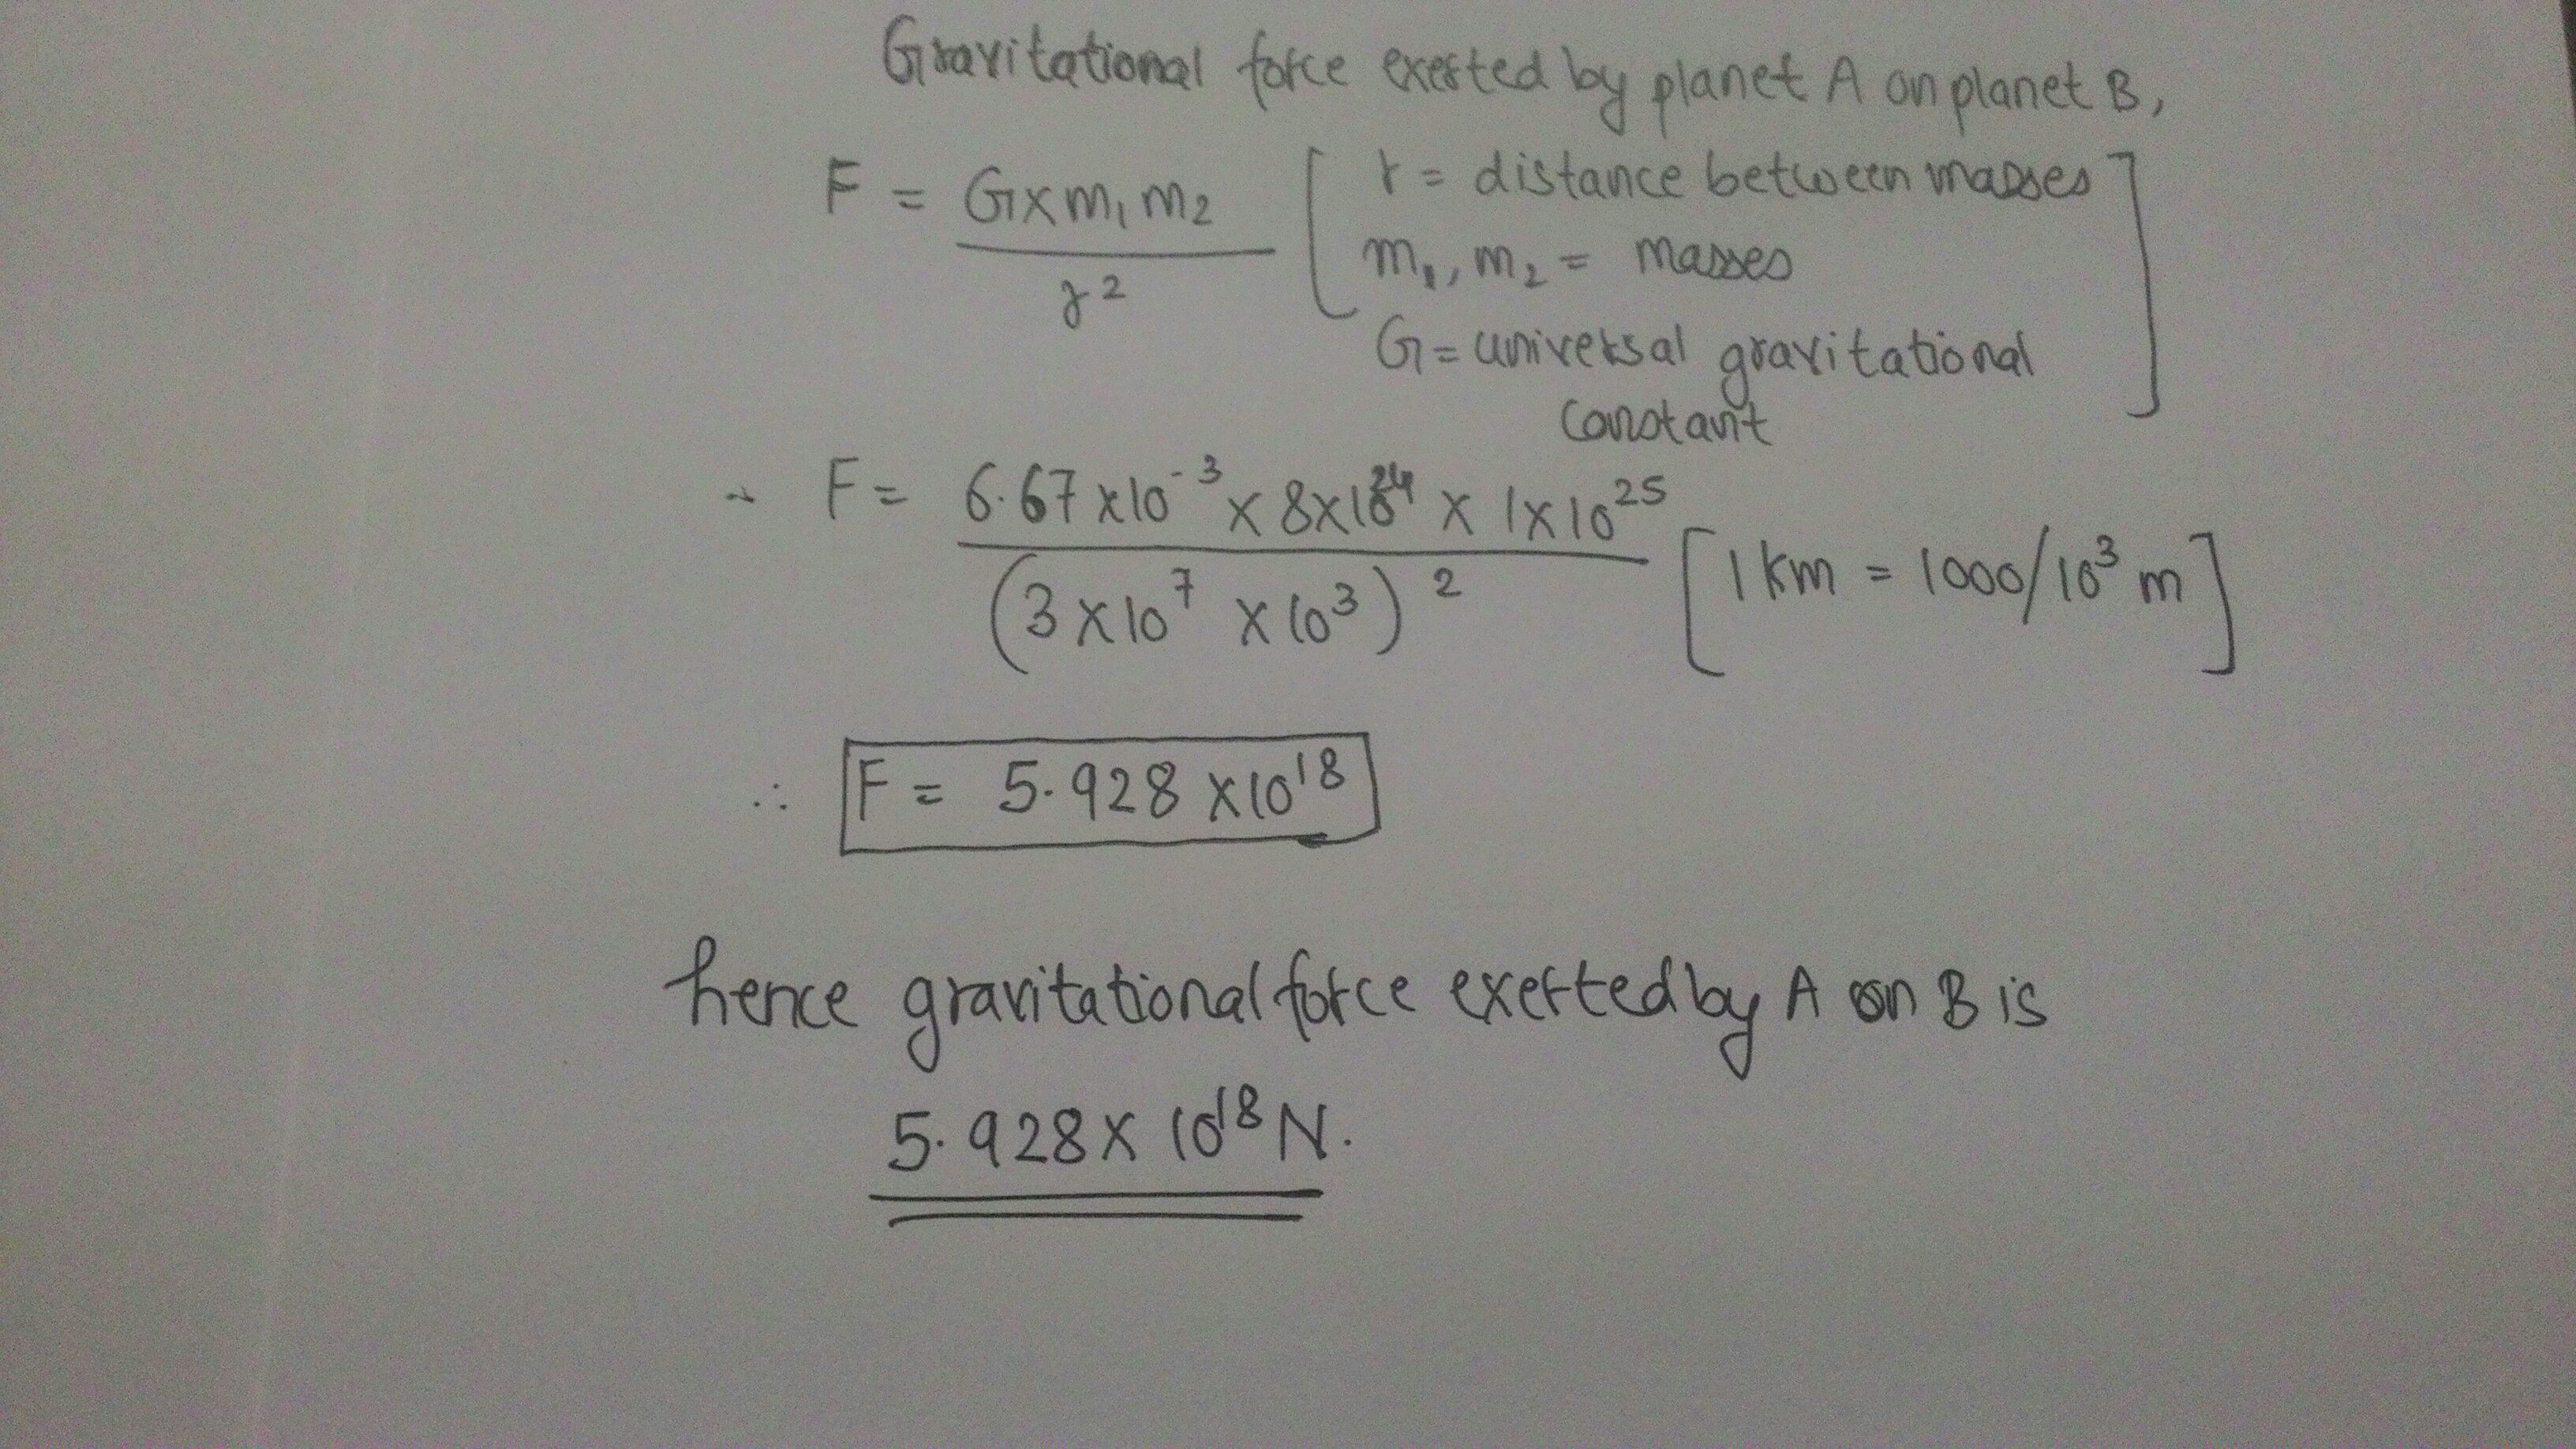 Gravitational force exerted by planet A on planet B,
F = G×m₁m₂ / r² [r = distance between masses
m₁, m₂ = masses
G = universal gravitational
constant]
∴ F = 6.67×10⁻³ × 8×10²⁴ × 1×10²⁵ / (3×10⁷ ×10³)² [1 km = 1000/10³ m]
∴ F = 5.928 ×10¹⁸
hence gravitational force exerted by A on B is
5.928× 10¹⁸ N.